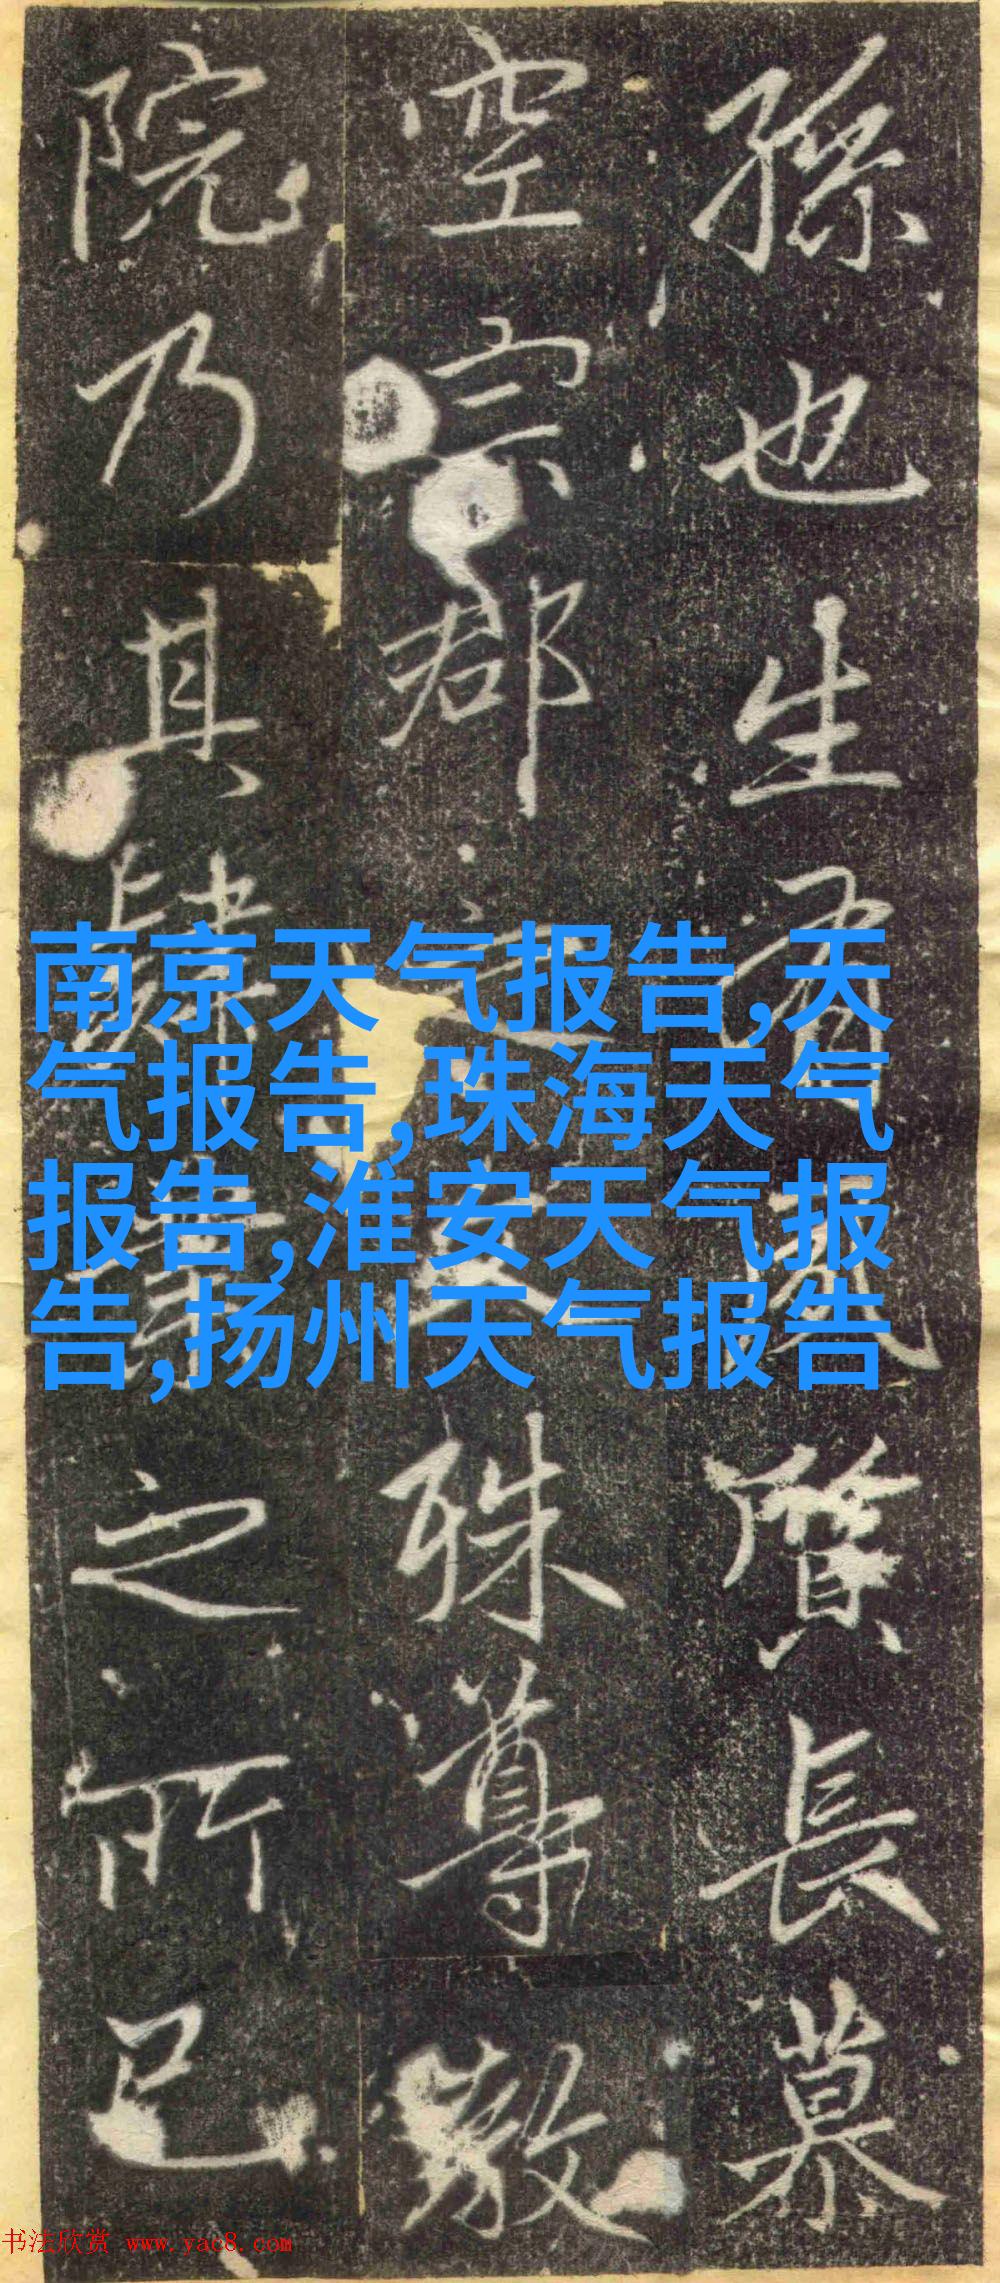 孫也生有質長慕
空宗郡殊尊敬
院乃其肄業之所已
南京天气报告,天
气报告,珠海天气
报告,淮安天气报
告,扬州天气报告
书法欣赏 www.yac8.com